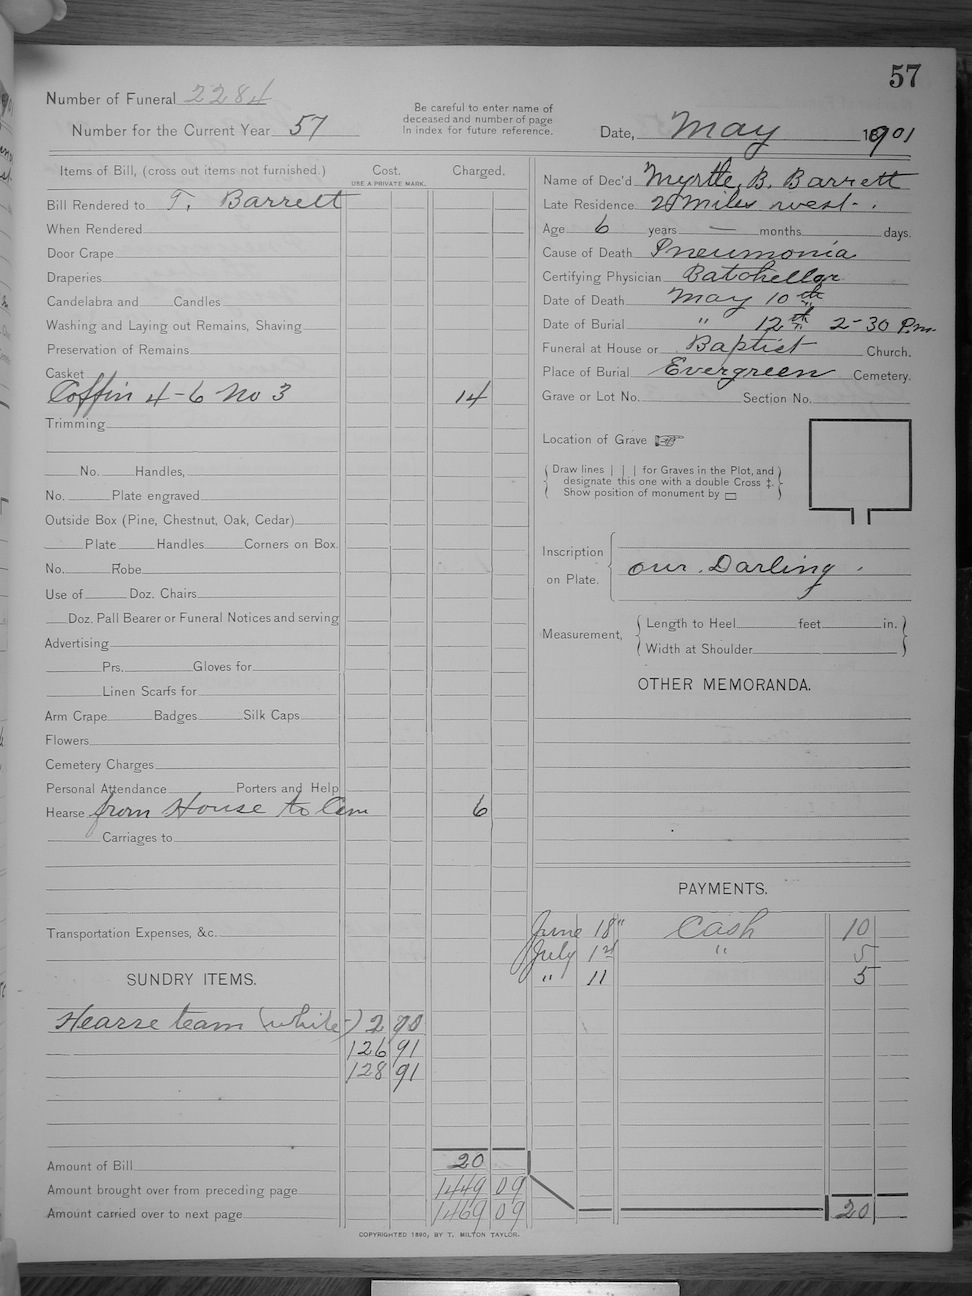 57
Number of Funeral 2284
Number for the Current Year 57
Be careful to enter name of
deceased and number of page
in index for future reference.
Date, May 1901
Items of Bill, (cross out items not furnished.) Cost. Charged.
USE A PRIVATE MARK.
Bill Rendered to T. Barrett
When Rendered
Door Crape
Draperies
Candelabra and Candles
Washing and Laying out Remains, Shaving
Preservation of Remains
Casket
Coffin 4-6 No 3 14
Trimming
No. Handles,
No. Plate engraved
Outside Box (Pine, Chestnut, Oak, Cedar)
Plate Handles Corners on Box.
No. Robe
Use of Doz. Chairs
Doz. Pall Bearer or Funeral Notices and serving
Advertising
Prs. Gloves for
Linen Scarfs for
Arm Crape Badges Silk Caps
Flowers
Cemetery Charges
Personal Attendance Porters and Help
Hearse from House to Cem 6
Carriages to
Transportation Expenses, &c.
SUNDRY ITEMS.
Hearse team (white) 2
126 91
128 91
Amount of Bill 20
Amount brought over from preceding page 1449 09
Amount carried over to next page 1469 09
Name of Dec'd Myrtle. B. Barrett
Late Residence miles west.
Age 6 years — months days.
Cause of Death Pneumonia
Certifying Physician Batcheller
Date of Death May 10th
Date of Burial " 12th 2-30 P.m.
Funeral at House or Baptist Church.
Place of Burial Evergreen Cemetery.
Grave or Lot No. Section No.
Location of Grave ☞
Draw lines | | | for Graves in the Plot, and
designate this one with a double Cross ‡.
Show position of monument by ▭
Inscription
on Plate.
our Darling
Measurement,
Length to Heel feet in.
Width at Shoulder
OTHER MEMORANDA.
PAYMENTS.
June 18" Cash 10
July 1st " 5
" 11 5
20
COPYRIGHTED 1890, BY T. MILTON TAYLOR.